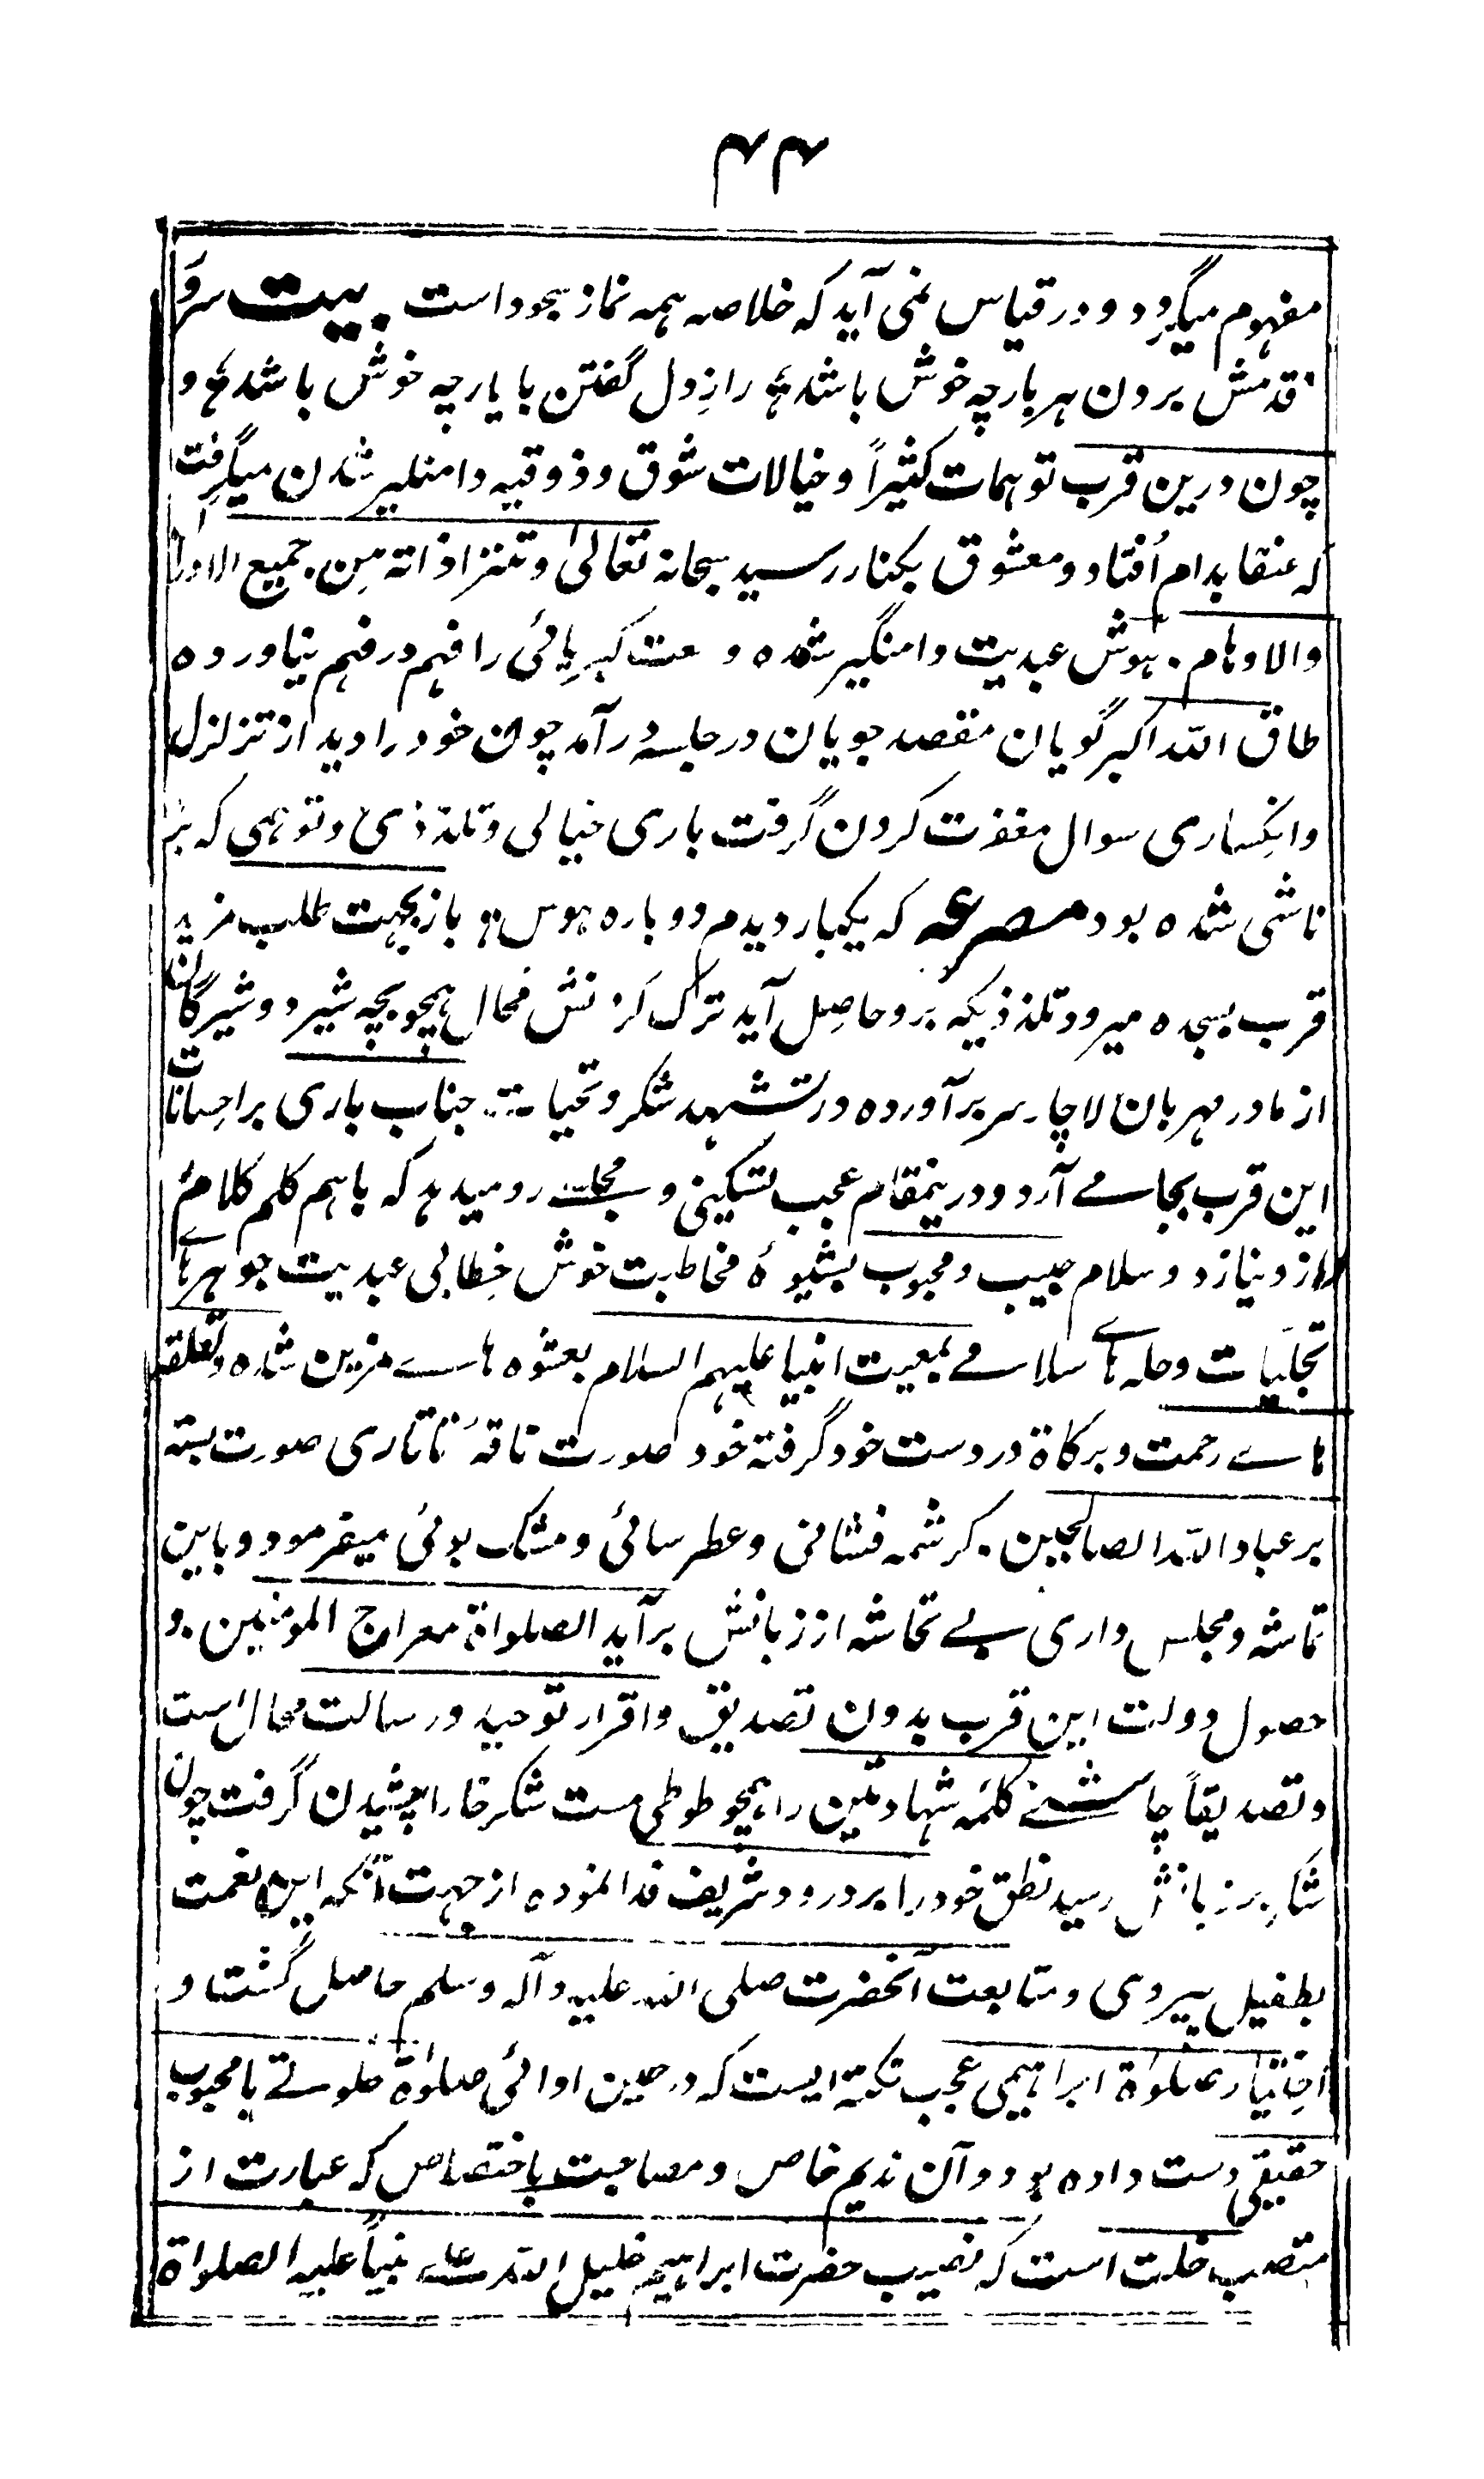 ۴۴
مفہوم میگردد و در قیاس نمی آید کہ خلاصہ ہمہ نماز سجود است . بیت سر و
قدمش بردن ہر بار چہ خوش باشد ؏ رازِ دل گفتن با یار چہ خوش باشد ؏ و
چون درین قرب توہمات کثیراً و خیالات شوق و ذوقیہ دامنگیر شدن میگرفت
کہ عنقا بدام اُفتاد و معشوق بکنار رسید سبحانہ تعالیٰ و تنزاہ ذاتہ مِن جمیع الادراک
والاوہام . ہوش عبدیت دامنگیر شدہ و کبریائی را فہم در فہم نیاوردہ
طاق اللہ اکبر گویان مقصد جویان در جلسہ در آمد چون خود را دید از تزلزل
و انکساری سوال مغفرت کردن گرفت باری خیالی و تلذذی و توہمی کہ
ناشی شدہ بود مصرعہ کہ یکبار دیدم دوبارہ ہوس ؛ باز بجہت طلب مزید
قرب بسجدہ میرود تلذذیکہ برو حاصِل آید ترک کردنش محال ہمچو بچہ شیر دو شیرگان
از مادر مہربان لاچار سر برآوردہ در تشہد شکر و تحیات جناب باری بر احسانات
این قرب بجا مے آرد و درینمقام عجب تسکینی و رو میدہد کہ باہم کلم کلام
راز و نیاز و سلام حبیب و محبوب بشیوۂ مخاطبت خوش خِطابی عبدیت جوہر ہائے
تجلّیات و حلہ ہائے سلامے بمعیت انبیا علیہم السلام بعشوہ ہاے مزین شدہ و تعلقہ
ہاے رحمت و برکاۃ در دست خود گرفتہ خود صورت ناقۂ تاتاری صورت بستہ
بر عباد اللہ الصالحین . کرشمہ فشانی و عطر سائی و مشک بوئی میفرمود و باین
تماشہ و مجلس داری بے تحاشہ از زبانش برآید الصلواۃ معراج المومنین . و
حصول دولت این قرب بدون تصدیق و اقرار توحید و رسالت محال است
و تصدیقاً چاشنے کلمۂ شہادتین را ہمچو طوطی مست شکر خارا چشیدن گرفت چون
شکر بر زبانش رسید نطق خود را بر درود شریف فدا نمودہ از جہت آنکہ این نعمت
بطفیل پیروی و متابعت آنحضرت صلی اللہ علیہ وآلہ وسلم حاصل گشت و
اختیاری صلوٰۃ ابراہیمی عجب نکتہ ایست کہ در حین اوائی صلوٰۃ خلوتے با محبوب
حقیقی دست دادہ بود و آن ندیم خاص و مصاحبت باختصاص کہ عبارت از
منصب خلت است کہ نصیب حضرت ابراہیم خلیل اللہ علے نبیاً علیہ الصلواۃ